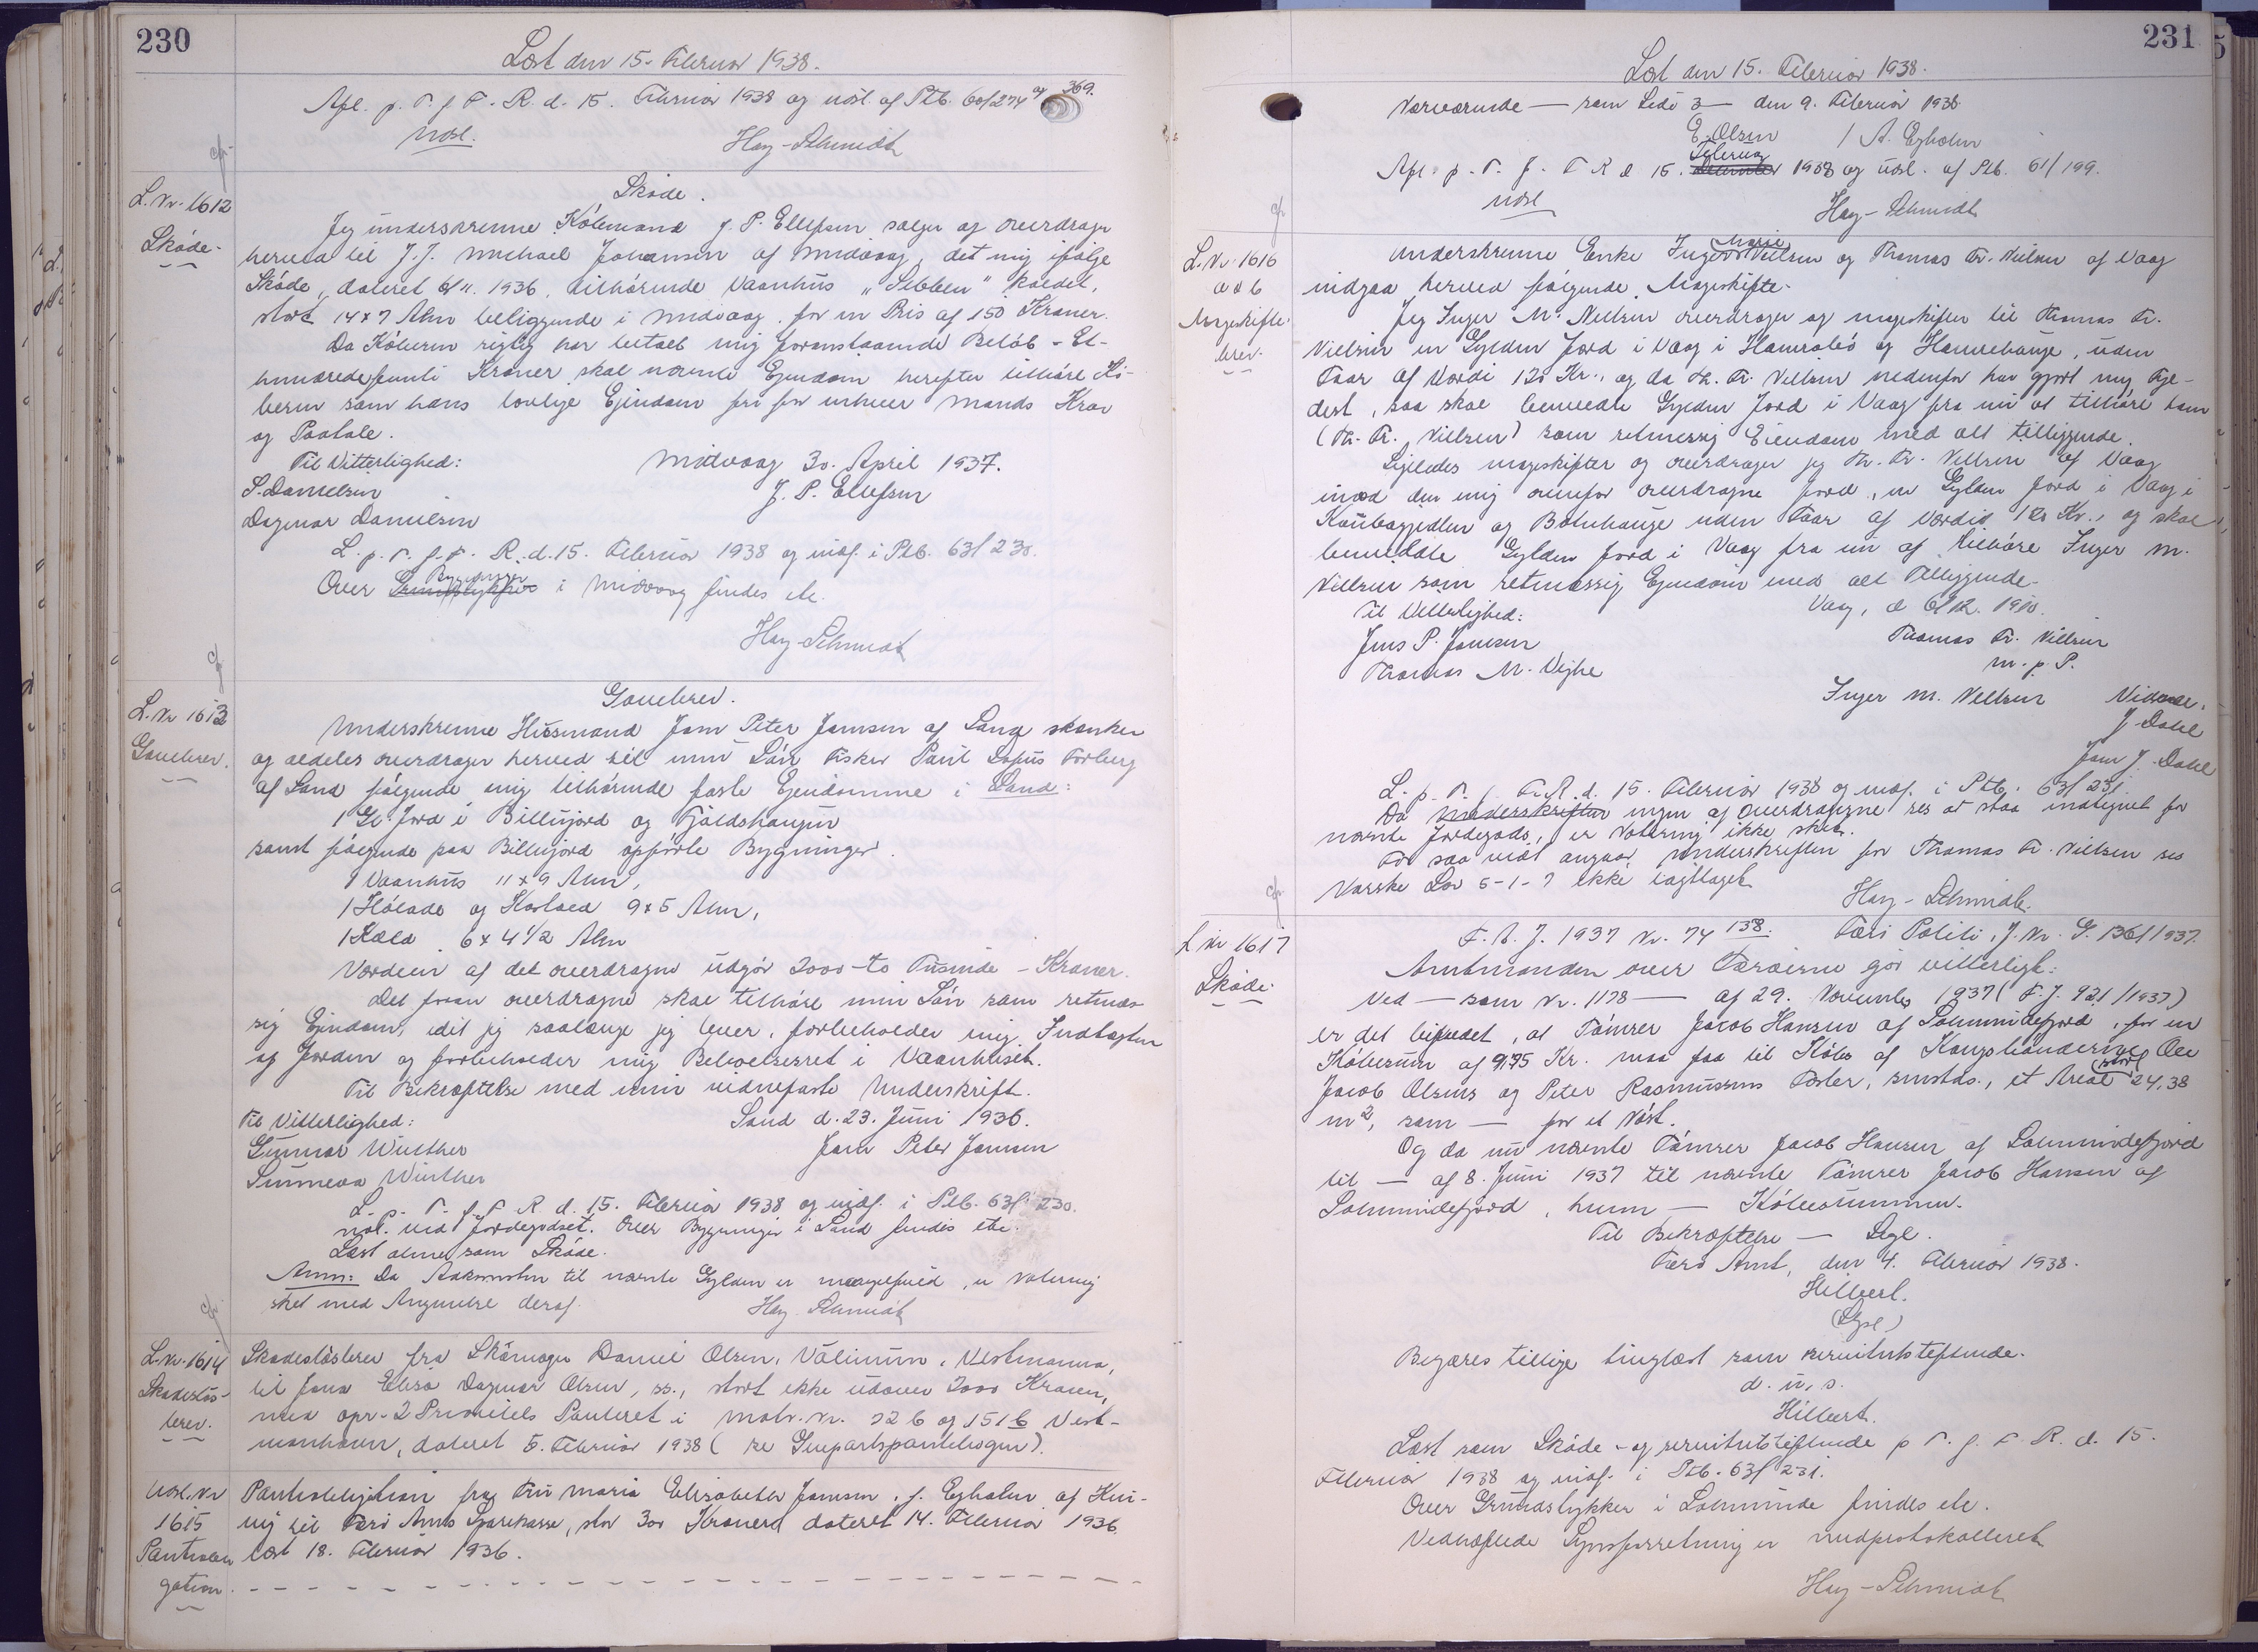 230
Læst den 15. Februar 1938.
Afl. p. T. f. F. R. d. 15. Februar 1938 og udsl. af Ptb. 60/274 og 369.
udsl. Hay-Schmidt
L. Nr. 1612
Skøde.
Skøde.
Jeg underskrevne Købmand J. P. Ellefsen sælger og overdrager
herved til J. J. Michael Johansen af Midvaag, det mig ifølge
Skøde, dateret 6/11. 1936, tilhørende Vaanhus "Slebben" kaldet,
stort 14x7 Alen beliggende i Midvaag, for en Pris af 150 Kroner.
Da Køberen rigtig har betalt mig foranstaaende Beløb - Et-
hundredefemti Kroner skal nævnte Ejendom herefter tilhøre Kø-
beren som hans lovlige Ejendom fri for enhver Mands Krav
og Paatale.
Til Vitterlighed: Midvaag 30. April 1937.
S. Danielsen J. P. Ellefsen
Dagmar Danielsen
L. p. T. f. F. R. d. 15. Februar 1938 og indf. i Ptb. 63/230.
Over Bygninger i Midvaag findes etc.
Hay-Schmidt
L. Nr 1613
Gavebrev.
Gavebrev.
Underskrevne Husmand Joen Peter Joensen af Sand skænker
og aldeles overdrager herved til min Søn Fisker Paul Torberg
af Sand følgende mig tilhørende faste Ejendomme i Sand:
1 Gl. Jord i Billujord og Fjøldshaugun
samt følgende paa Billujord opførte Bygninger.
1 Vaanhus 11 x 9 Alen,
1 Hølade og Kostald 9x5 Alen,
1 Kæld 6 x 4 1/2 Alen
Værdien af det overdragne udgør 2000 - to Tusinde - Kroner.
Det foran overdragne skal tilhøre min Søn som retmæs-
sig Ejendom, idet jeg saalænge jeg lever, forbeholder mig Indtægten
af Jorden og forbeholder mig Beboelsesret i Vaanhuset.
Til Bekræftelse med min vidnefaste Underskrift.
Til Vitterlighed: Sand d. 23. Juni 1936.
Gunnar Winther Joen Peter Joensen
Sunneva Winther
L. p. T. f. F. R. d. 15. Februar 1938 og indf. i Ptb. 63/230.
not. ved Jordegodset. Over Bygninger i Sand findes etc.
Læst alene som Skøde.
Anm: Da Adkomsten til nævnte Gylden er mangelfuld, er Notering
sket med Angivelse deraf. Hay-Schmidt
L. Nr. 1614
Skadesløs-
brev.
Skadesløsbrev fra Skómager Daniel Olsen, Válinum, Vestmanna,
til Jona Elisa Dagmar Olsen, ss., stort ikke udover 2000 Kroner,
med opr. 2 Prioritets Panteret i Matr. Nr. 32 b og 151 b Vest-
manhavn, dateret 5. Februar 1938 (se Genpartspantebogen).
Udsl. Nr
1615
Pantobli-
gation.
Pantobligation fra Fru Maria Elisabeth Joensen, f. Egholm af Hui-
vig til Færø Amts Sparekasse, stor 300 Kroner, dateret 14. Februar 1936
læst 18. Februar 1936.
231
Læst den 15. Februar 1938.
Nærværende — som Side 3 — den 9. Februar 1938.
E. Olsen / A. Egholm
Afl. p. T. f. F R d 15. Februar 1938 og udsl. af Ptb. 61/199.
udsl Hay-Schmidt
L. Nr. 1616
a & b
Mageskifte-
brev.
Underskrevne Enke Inger Marie Nielsen og Thomas Fr. Nielsen af Vaag
indgaa herved følgende Mageskifte.
Jeg Inger M. Nielsen overdrager og mageskifter til Thomas Fr.
Nielsen en Gylden Jord i Vaag i Hamrabø og Hamrehauge, uden
Faar af Værdi 120 Kr., og da Th. Fr. Nielsen nedenfor har gjort mig Fyl-
dest, saa skal bemeldte Gylden Jord i Vaag fra nu af tilhøre ham
(Th. Fr. Nielsen) som retmæssig Eiendom med alt tilliggende.
Ligeledes mageskifter og overdrager jeg Th. Fr. Nielsen af Vaag
imod den mig ovenfor overdragne Jord, en Gylden Jord i Vaag i
og Botnhauge uden Faar af Værdi 120 Kr., og skal
bemeldte Gylden Jord i Vaag fra nu af tilhøre Inger M.
Nielsen som retmæssig Ejendom med alt Tilliggende.
Til Vitterlighed: Vaag, d 6/12. 1910.
Jens P. Joensen Thomas Fr. Nielsen
Thomas M. Vejhe m. p. P.
Inger M. Nielsen Vidende.
J. Dahl
Joen J. Dahl
L. p. T. f. F. R. d. 15. Februar 1938 og indf. i Ptb. 63/231.
Da ingen af Overdragerne ses at staa indtegnet for
nævnte Jordegods, er Notering ikke sket.
For saa vidt angaar Underskriften for Thomas Fr. Nielsen ses
Norske Lov 5-1-7 ikke iagttaget.
Hay-Schmidt.
L Nr 1617
Skøde.
F. A. J. 1937 Nr. 74 138. Færø Politi, J. Nr. G. 136/1937.
Amtmanden over Færøerne gør vitterligt:
Ved — som Nr. 1178 — af 29. November 1937 (F. J. 921/1937)
er det bifaldet, at Tømrer Jacob Hansen af Solmundefjord, for en
Købesum af 9,75 Kr. maa faa til Købs af Kongsbønderne Ole
Jacob Olsens og Peter Rasmussens Fæster, smstds., et Areal stort 24,38
m2, som — for et Nøst.
Og da nu nævnte Tømrer Jacob Hansen af Solmundefjord
til — af 8. Juni 1937 til nævnte Tømrer Jacob Hansen af
Solmundefjord, hvem — Købesummen.
Til Bekræftelse — Segl.
Færø Amt, den 4. Februar 1938.
Hilbert.
(Segl)
Begæres tillige tinglæst som servitutstiftende.
d. u. s.
Hilbert.
Læst som Skøde - og servitutstiftende p T. f. F. R. d. 15.
Februar 1938 og indf. i Ptb. 63/231.
Over Grundstykker i Solmunde findes etc.
Vedhæftede Synsforretning er medprotokolleret
Hay-Schmidt